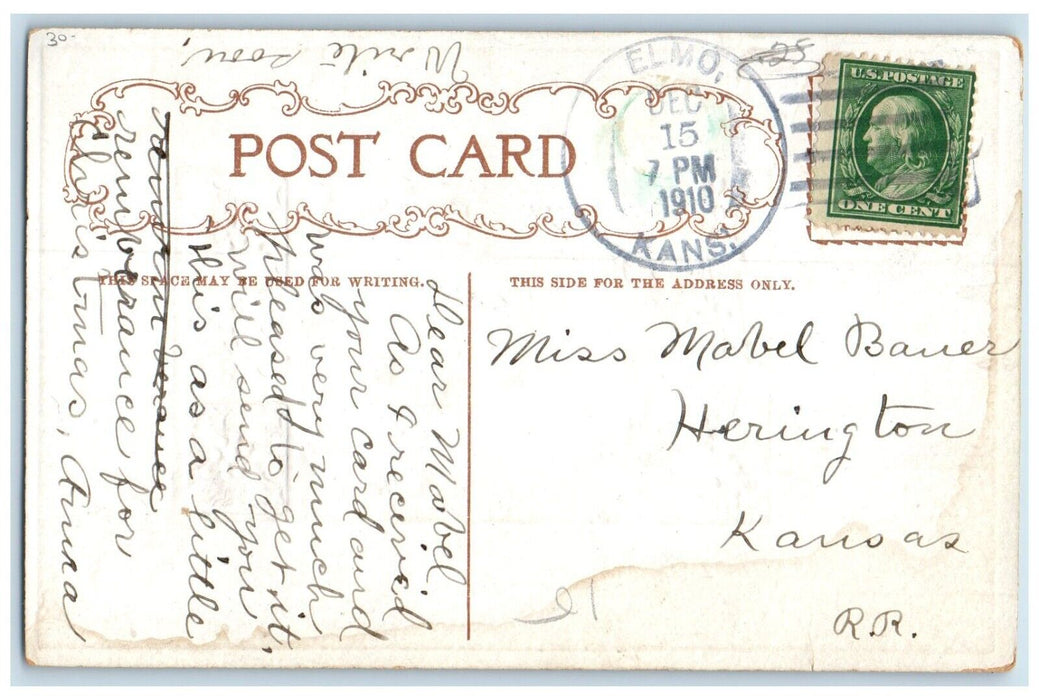 30-
Write soon,
25
ELMO,
DEC
15
7 PM
1910
KANS.
U.S. POSTAGE
ONE CENT
POST CARD
THIS SPACE MAY BE USED FOR WRITING.
THIS SIDE FOR THE ADDRESS ONLY.
Dear Mabel
As I received
your card and
was very much
pleased to get it,
will send you
this as a little
rembrance for
Christmas, Anna
Miss Mabel Bauer
Herington
Kansas
R.R.